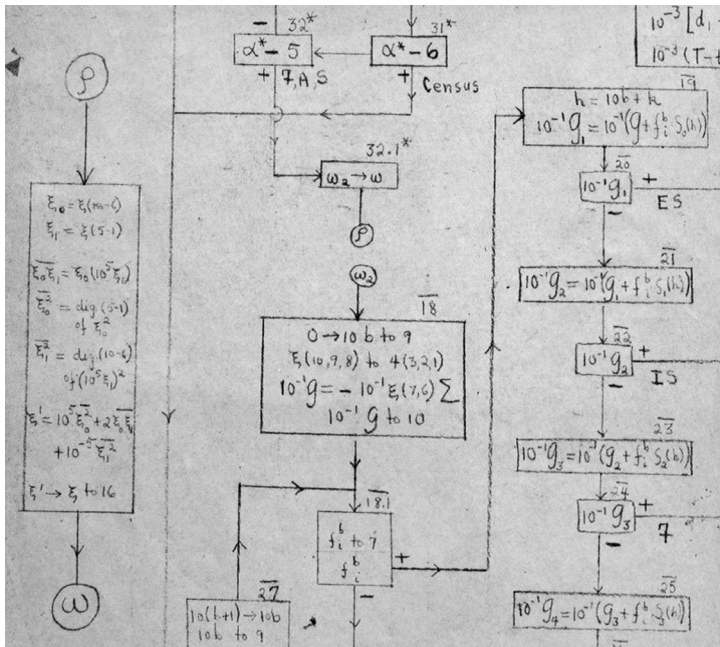 ρ
ξ₁ = ξ(5-1)
ξ₀ξ₁ = ξ₀(10⁵ξ₁)
ξ₀² = dig.(5-1)
of ξ₀²
ξ₁² = dig.(10-6)
of (10⁵ξ₁)²
+ 10⁻⁵ξ₁²
ξ' → ξ to 16
ω
32*
α* - 5
31*
α* - 6
-
+
7, A, S
+
Census
32.1*
ω₂ → ω
ρ
ω₂
18
0 → 10b to 9
ξ(10,9,8) to 4(3,2,1)
10⁻¹g = - 10⁻¹ξ(7,6) Σ
10⁻¹g to 10
18.1
fᵢᵇ to j
fᵢᵇ
+
-
27
10(b+1) → 10b
10b to 9
10⁻³[d₁ -
10⁻³(T-t
19
h = 10b + k
10⁻¹g₁ = 10⁻¹(g + fᵢᵇ S₀(h))
20
10⁻¹g₁
+
ES
-
21
10⁻¹g₂ = 10⁻¹(g₁ + fᵢᵇ S₁(h))
22
10⁻¹g₂
+
IS
-
23
10⁻¹g₃ = 10⁻¹(g₂ + fᵢᵇ S₂(h))
24
10⁻¹g₃
+
7
-
25
10⁻¹g₄ = 10⁻¹(g₃ + fᵢᵇ S₃(h))